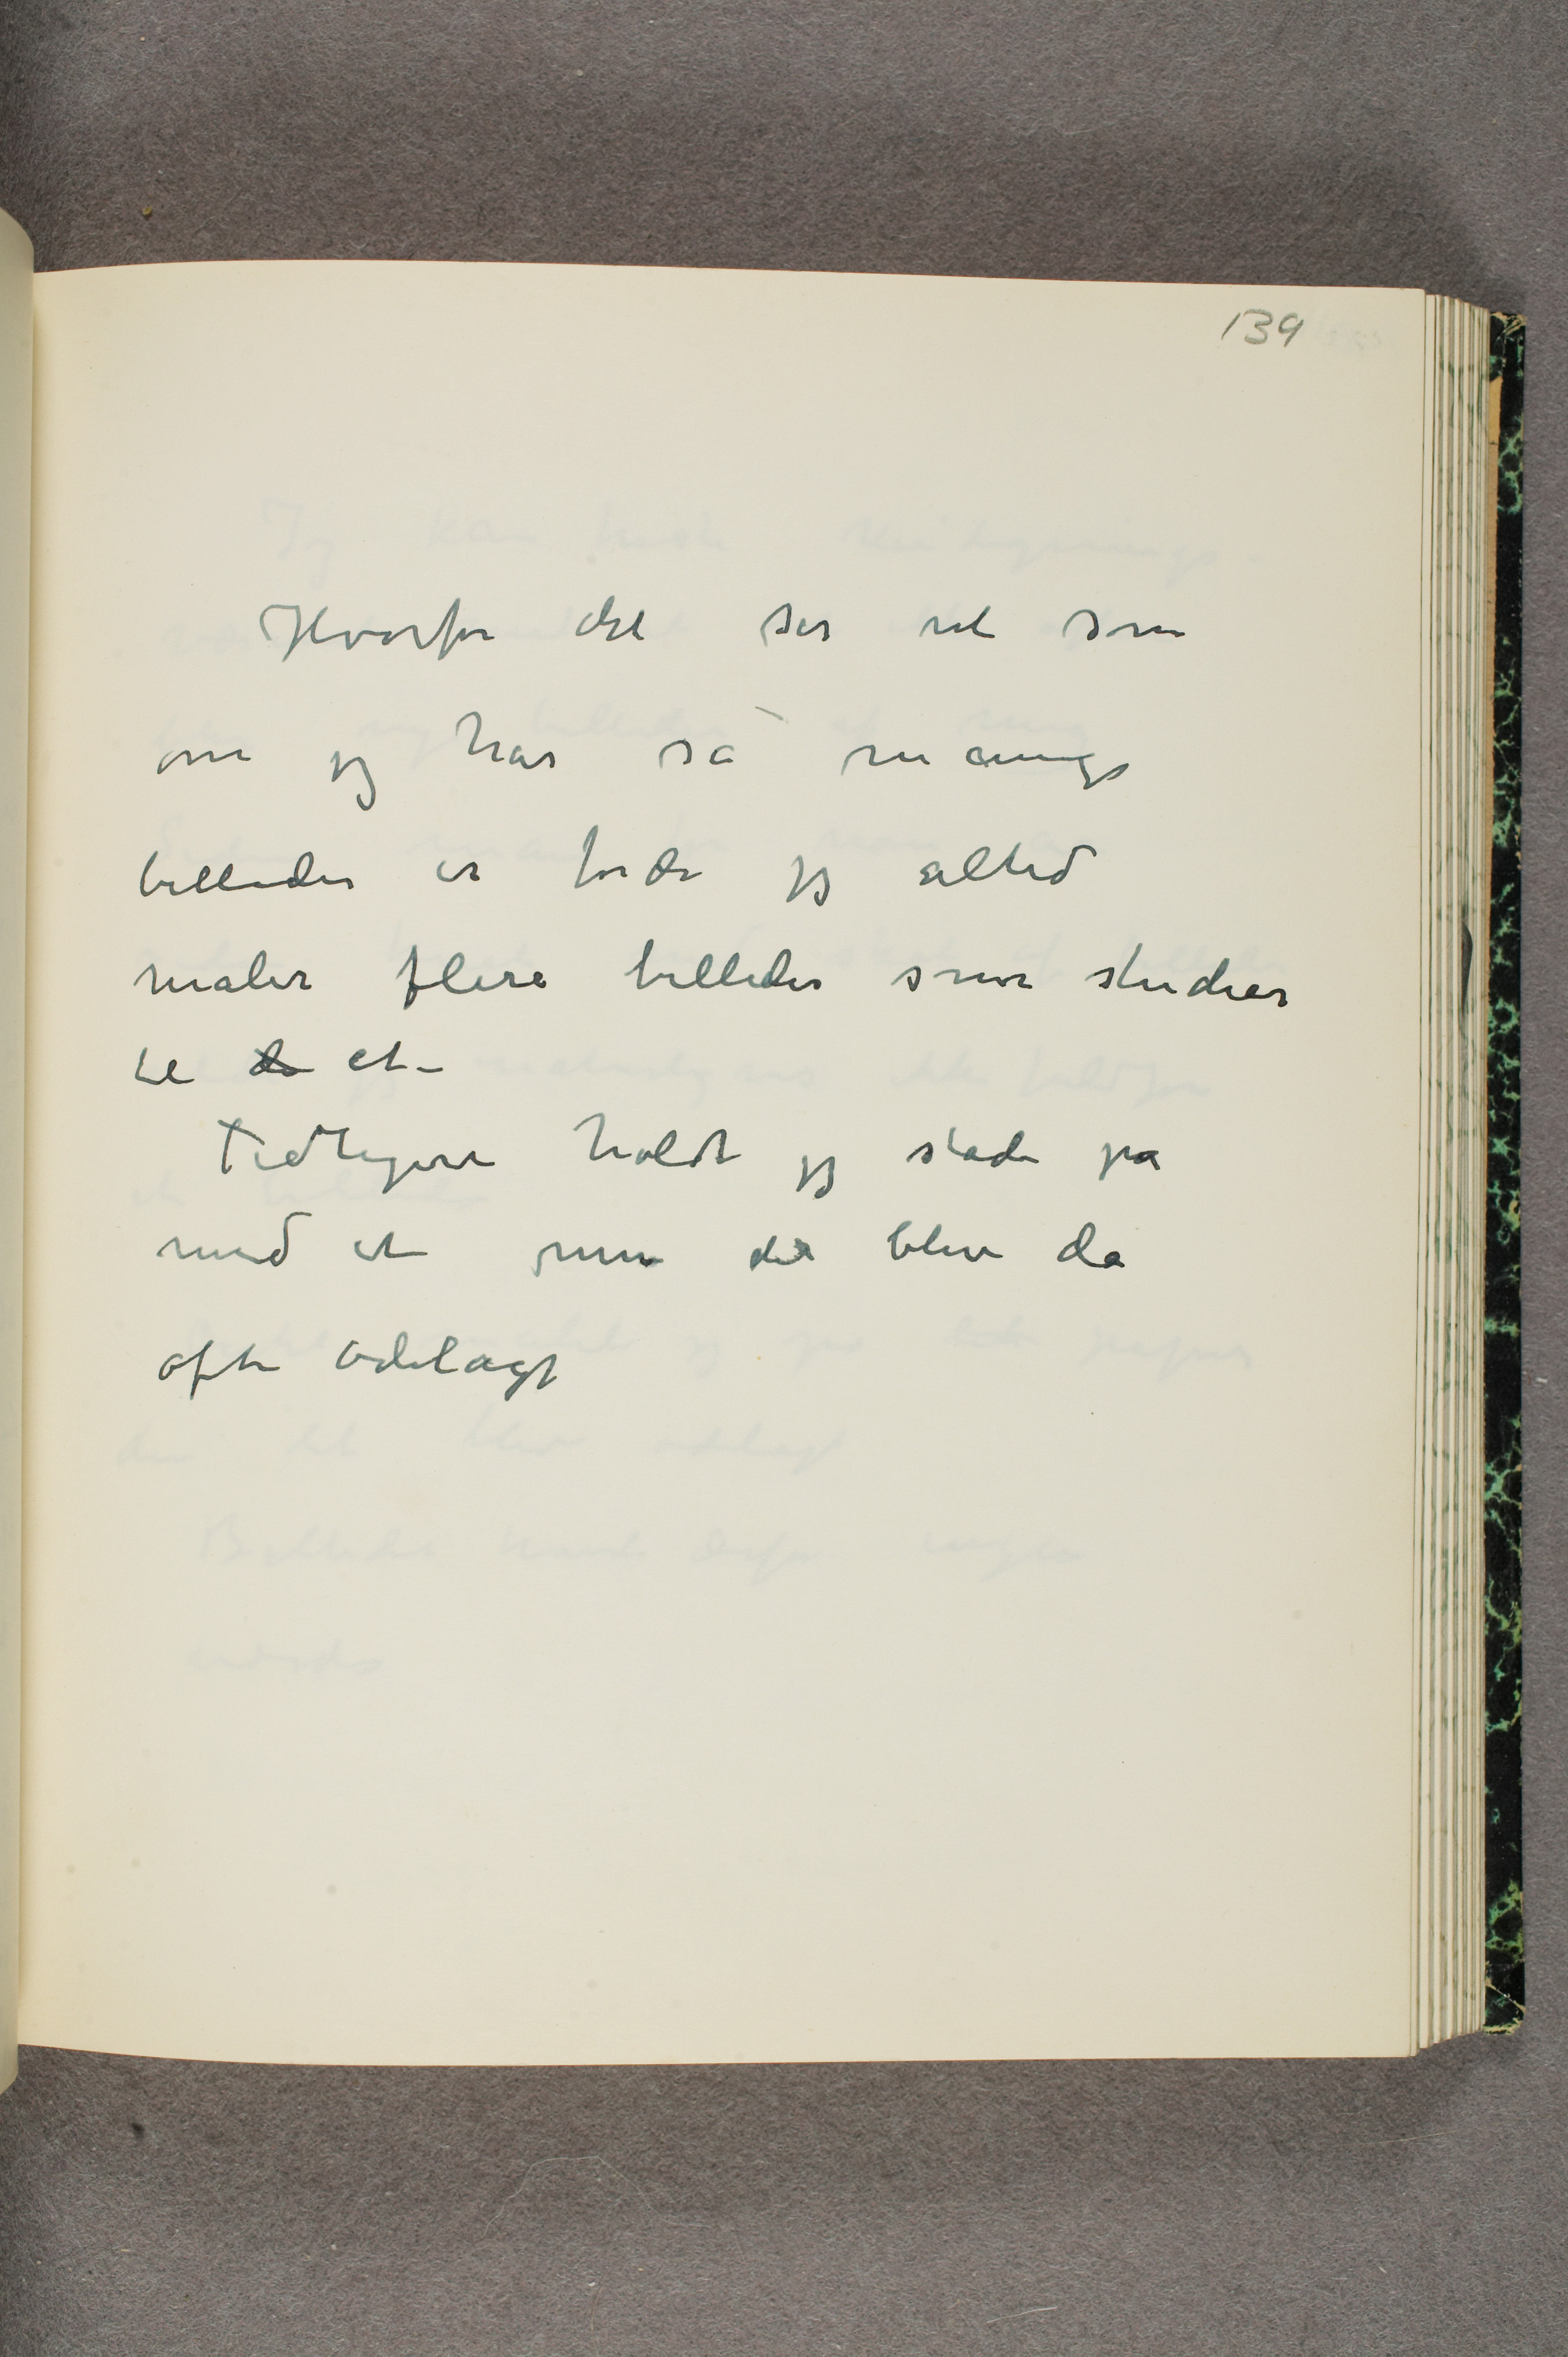 139
Hvorfor det ser ut som
om jeg har så mange
billeder er fordi jeg altid
maler flere billeder som studier
til de et –
Tidligere holdt jeg stadi på
med et men det blev da
ofte ødelagt